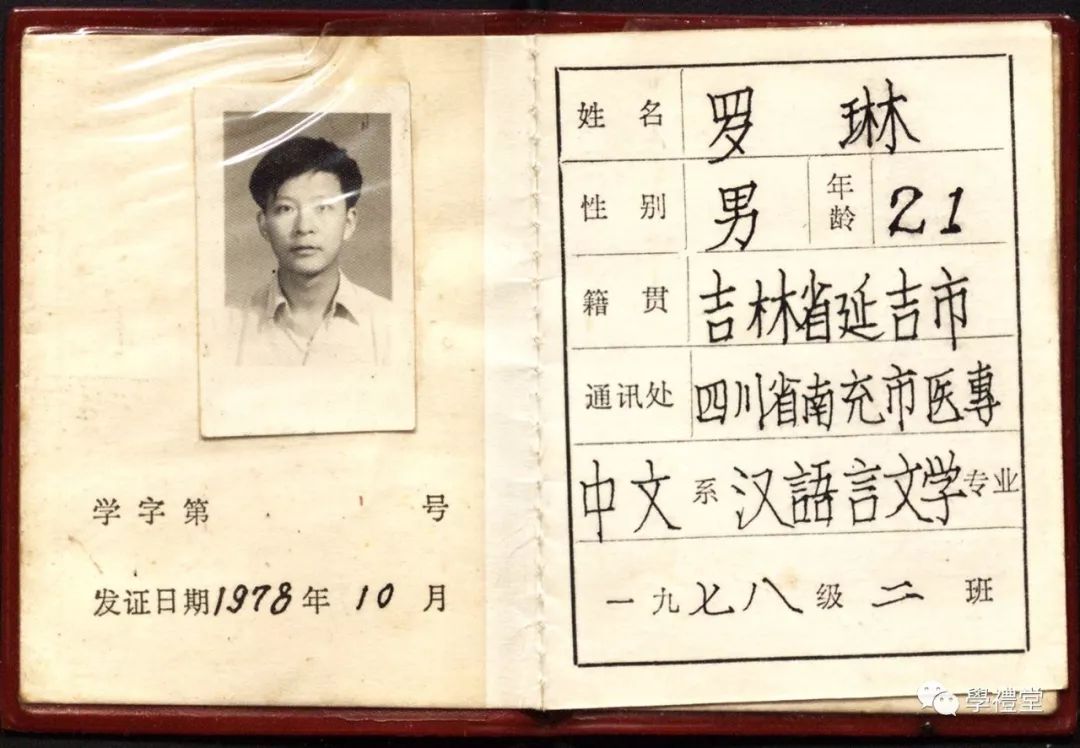 学字第 号
发证日期1978年10月
姓名 罗琳
性别 男 年龄 21
籍贯 吉林省延吉市
通讯处 四川省南充市医專
中文系汉語言文学专业
一九七八级二班
學禮堂